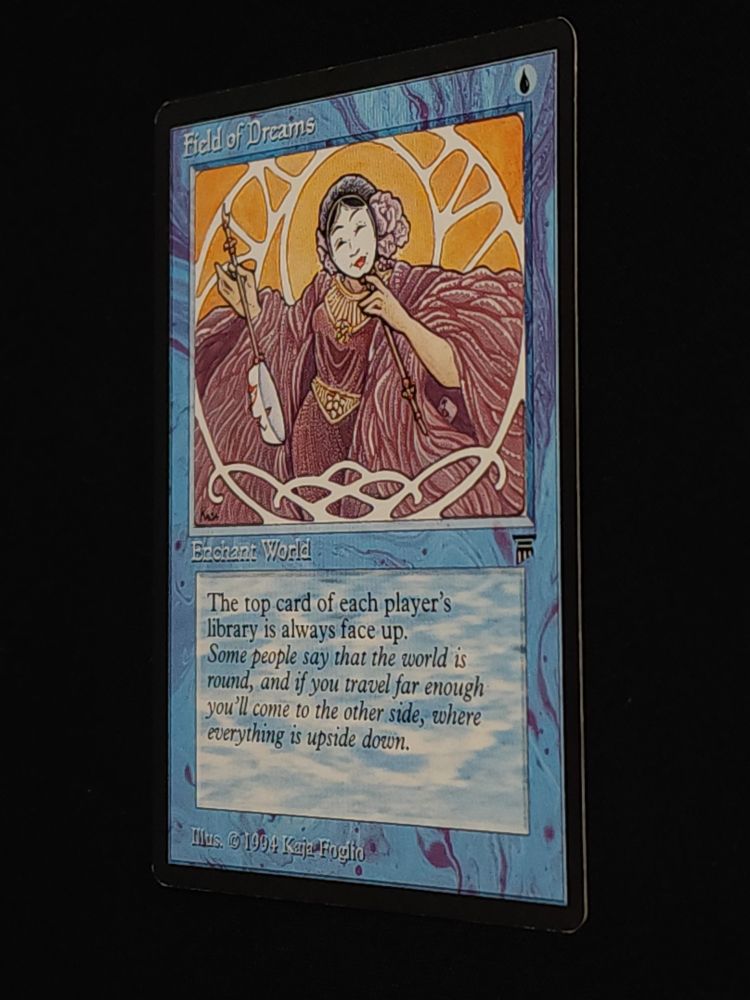 Field of Dreams
Kaja
Enchant World
The top card of each player's
library is always face up.
Some people say that the world is
round, and if you travel far enough
you'll come to the other side, where
everything is upside down.
Illus. © 1994 Kaja Foglio